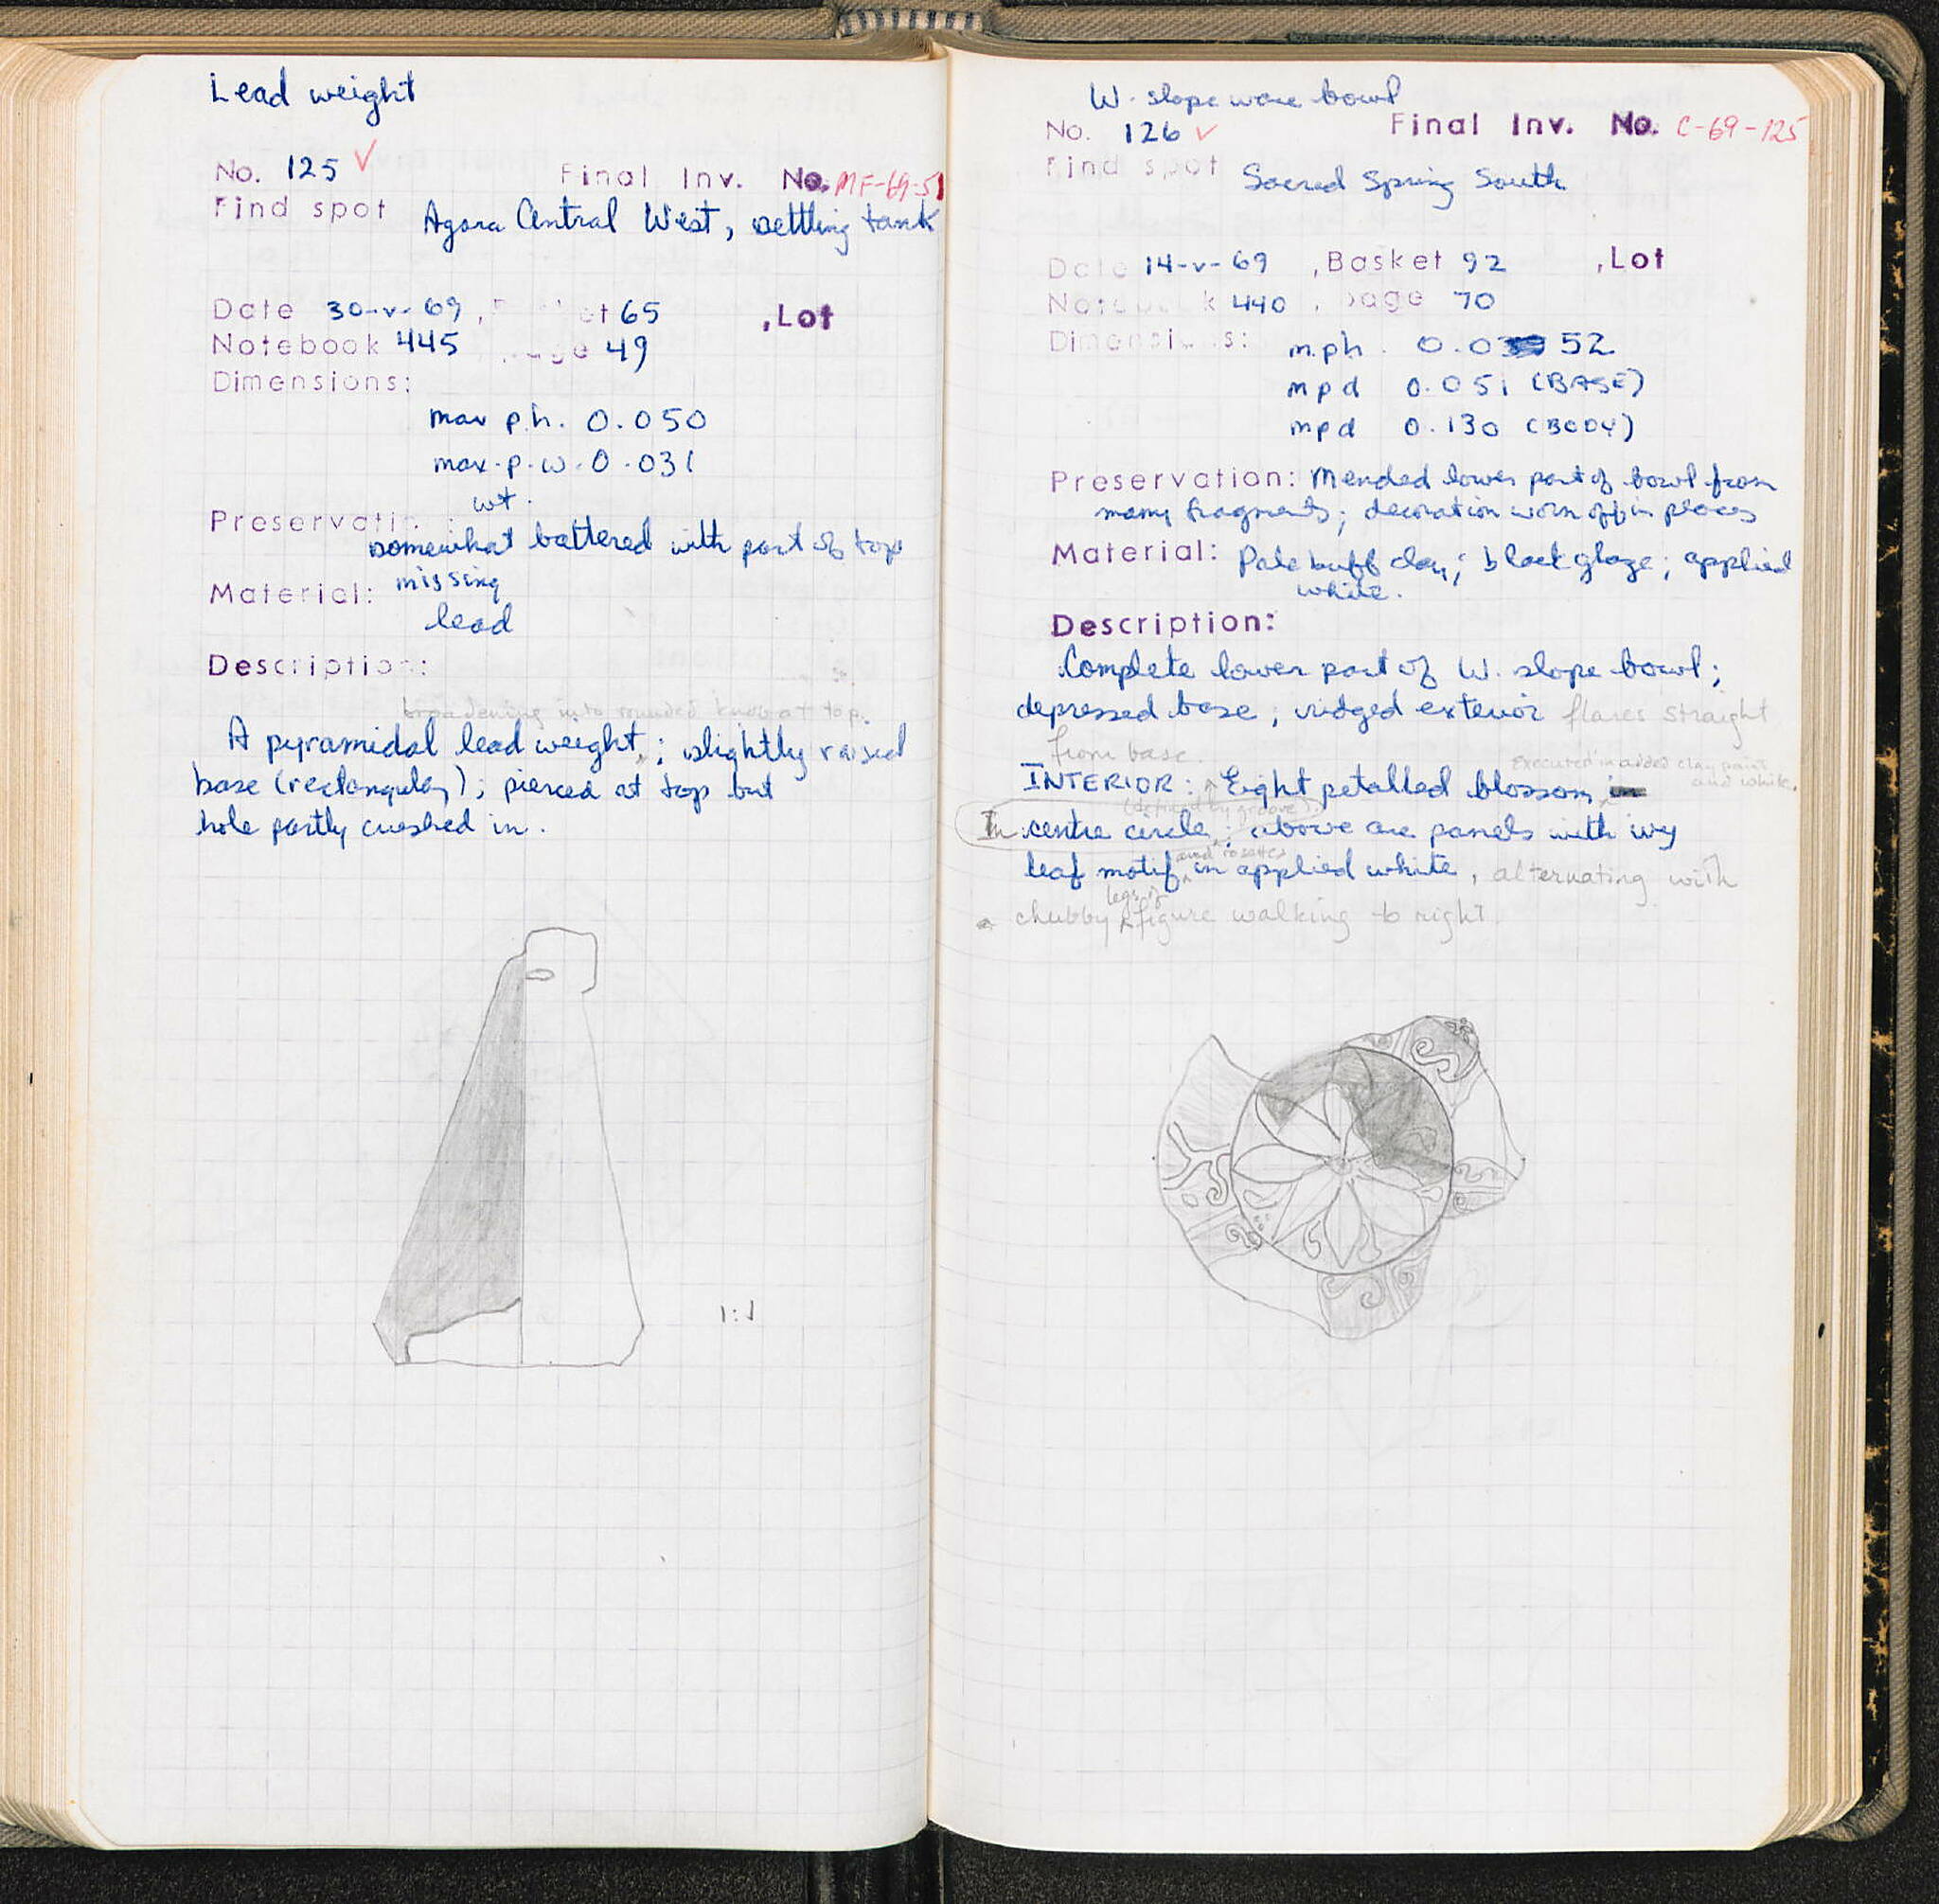 Lead weight
No. 125 ✓ Final Inv. No. MF-69-51
Find spot Agora Central West, settling tank
Date 30-v-69, Basket 65 , Lot
Notebook 445 , page 49
Dimensions:
max p.h. 0.050
max. p. w. 0.031
wt.
Preservation:
somewhat battered with part of top
missing
Material:
lead
Description:
broadening into rounded knob at top.
A pyramidal lead weight, ; slightly raised
base (rectangular); pierced at top but
hole partly crushed in.
1:1
W. slope ware bowl
No. 126 ✓ Final Inv. No. C-69-125
Find spot Sacred Spring South
Date 14-v-69 , Basket 92 , Lot
Notebook 440 , page 70
Dimensions: m.ph. 0.052
mpd 0.051 (BASE)
mpd 0.130 (BODY)
Preservation: Mended lower part of bowl from
many fragments; decoration worn off in places
Material: Pale buff clay; black glaze; applied
white.
Description:
Complete lower part of W. slope bowl;
depressed base; ridged exterior flares straight
from base.
Executed in added clay paint
and white.
INTERIOR: Eight petalled blossom in
(defined by groove)
In centre circle; above are panels with ivy
and rosettes
leaf motif in applied white, alternating with
legs of
chubby figure walking to right.